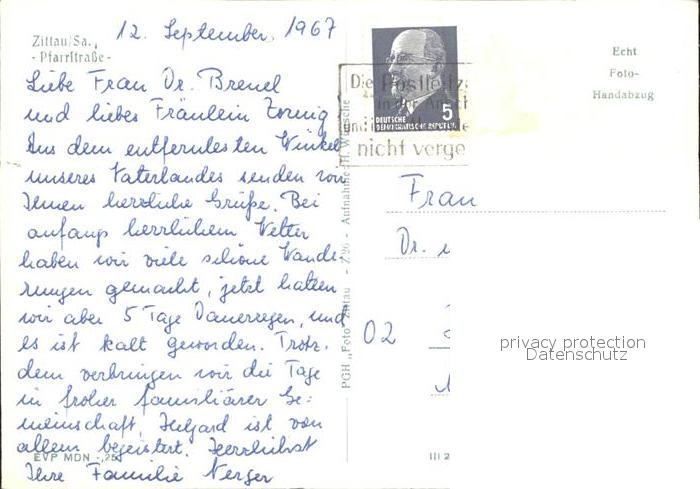 12. September 1967
Zittau/Sa.,
- Pfarrstraße -
Liebe Frau Dr. Breuel
und liebes Fräulein Zornig
Aus dem entferntesten Winkel
unseres Vaterlandes senden wir
Ihnen herzliche Grüße. Bei
anfangs herrlichem Wetter
haben wir viele schöne Wande-
rungen gemacht, jetzt hatten
wir aber 5 Tage Dauerregen, und
es ist kalt geworden. Trotz-
dem verbringen wir die Tage
in froher familiärer Ge-
meinschaft, ist von
allem begeistert. Herzlichst
EVP MDN -,25
Ihre Familie Nerger
PGH „Foto" Zittau - Z 26 - Aufnahme: H. Wünsche
Die Postleitza
in der Ansch
und
nicht verge
5
DEUTSCHE
DEMOKRATISCHE REPUBLIK
Echt
Foto-
Handabzug
Frau
Dr.
02
privacy protection
Datenschutz
III 2